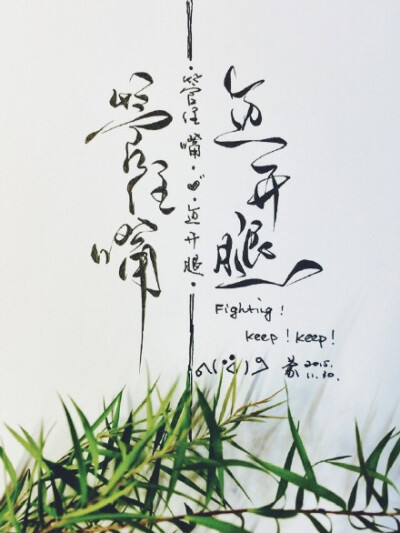 管住嘴
·管住嘴·♥·迈开腿·
迈开腿
Fighting!
keep! keep!
2015.
11.30.